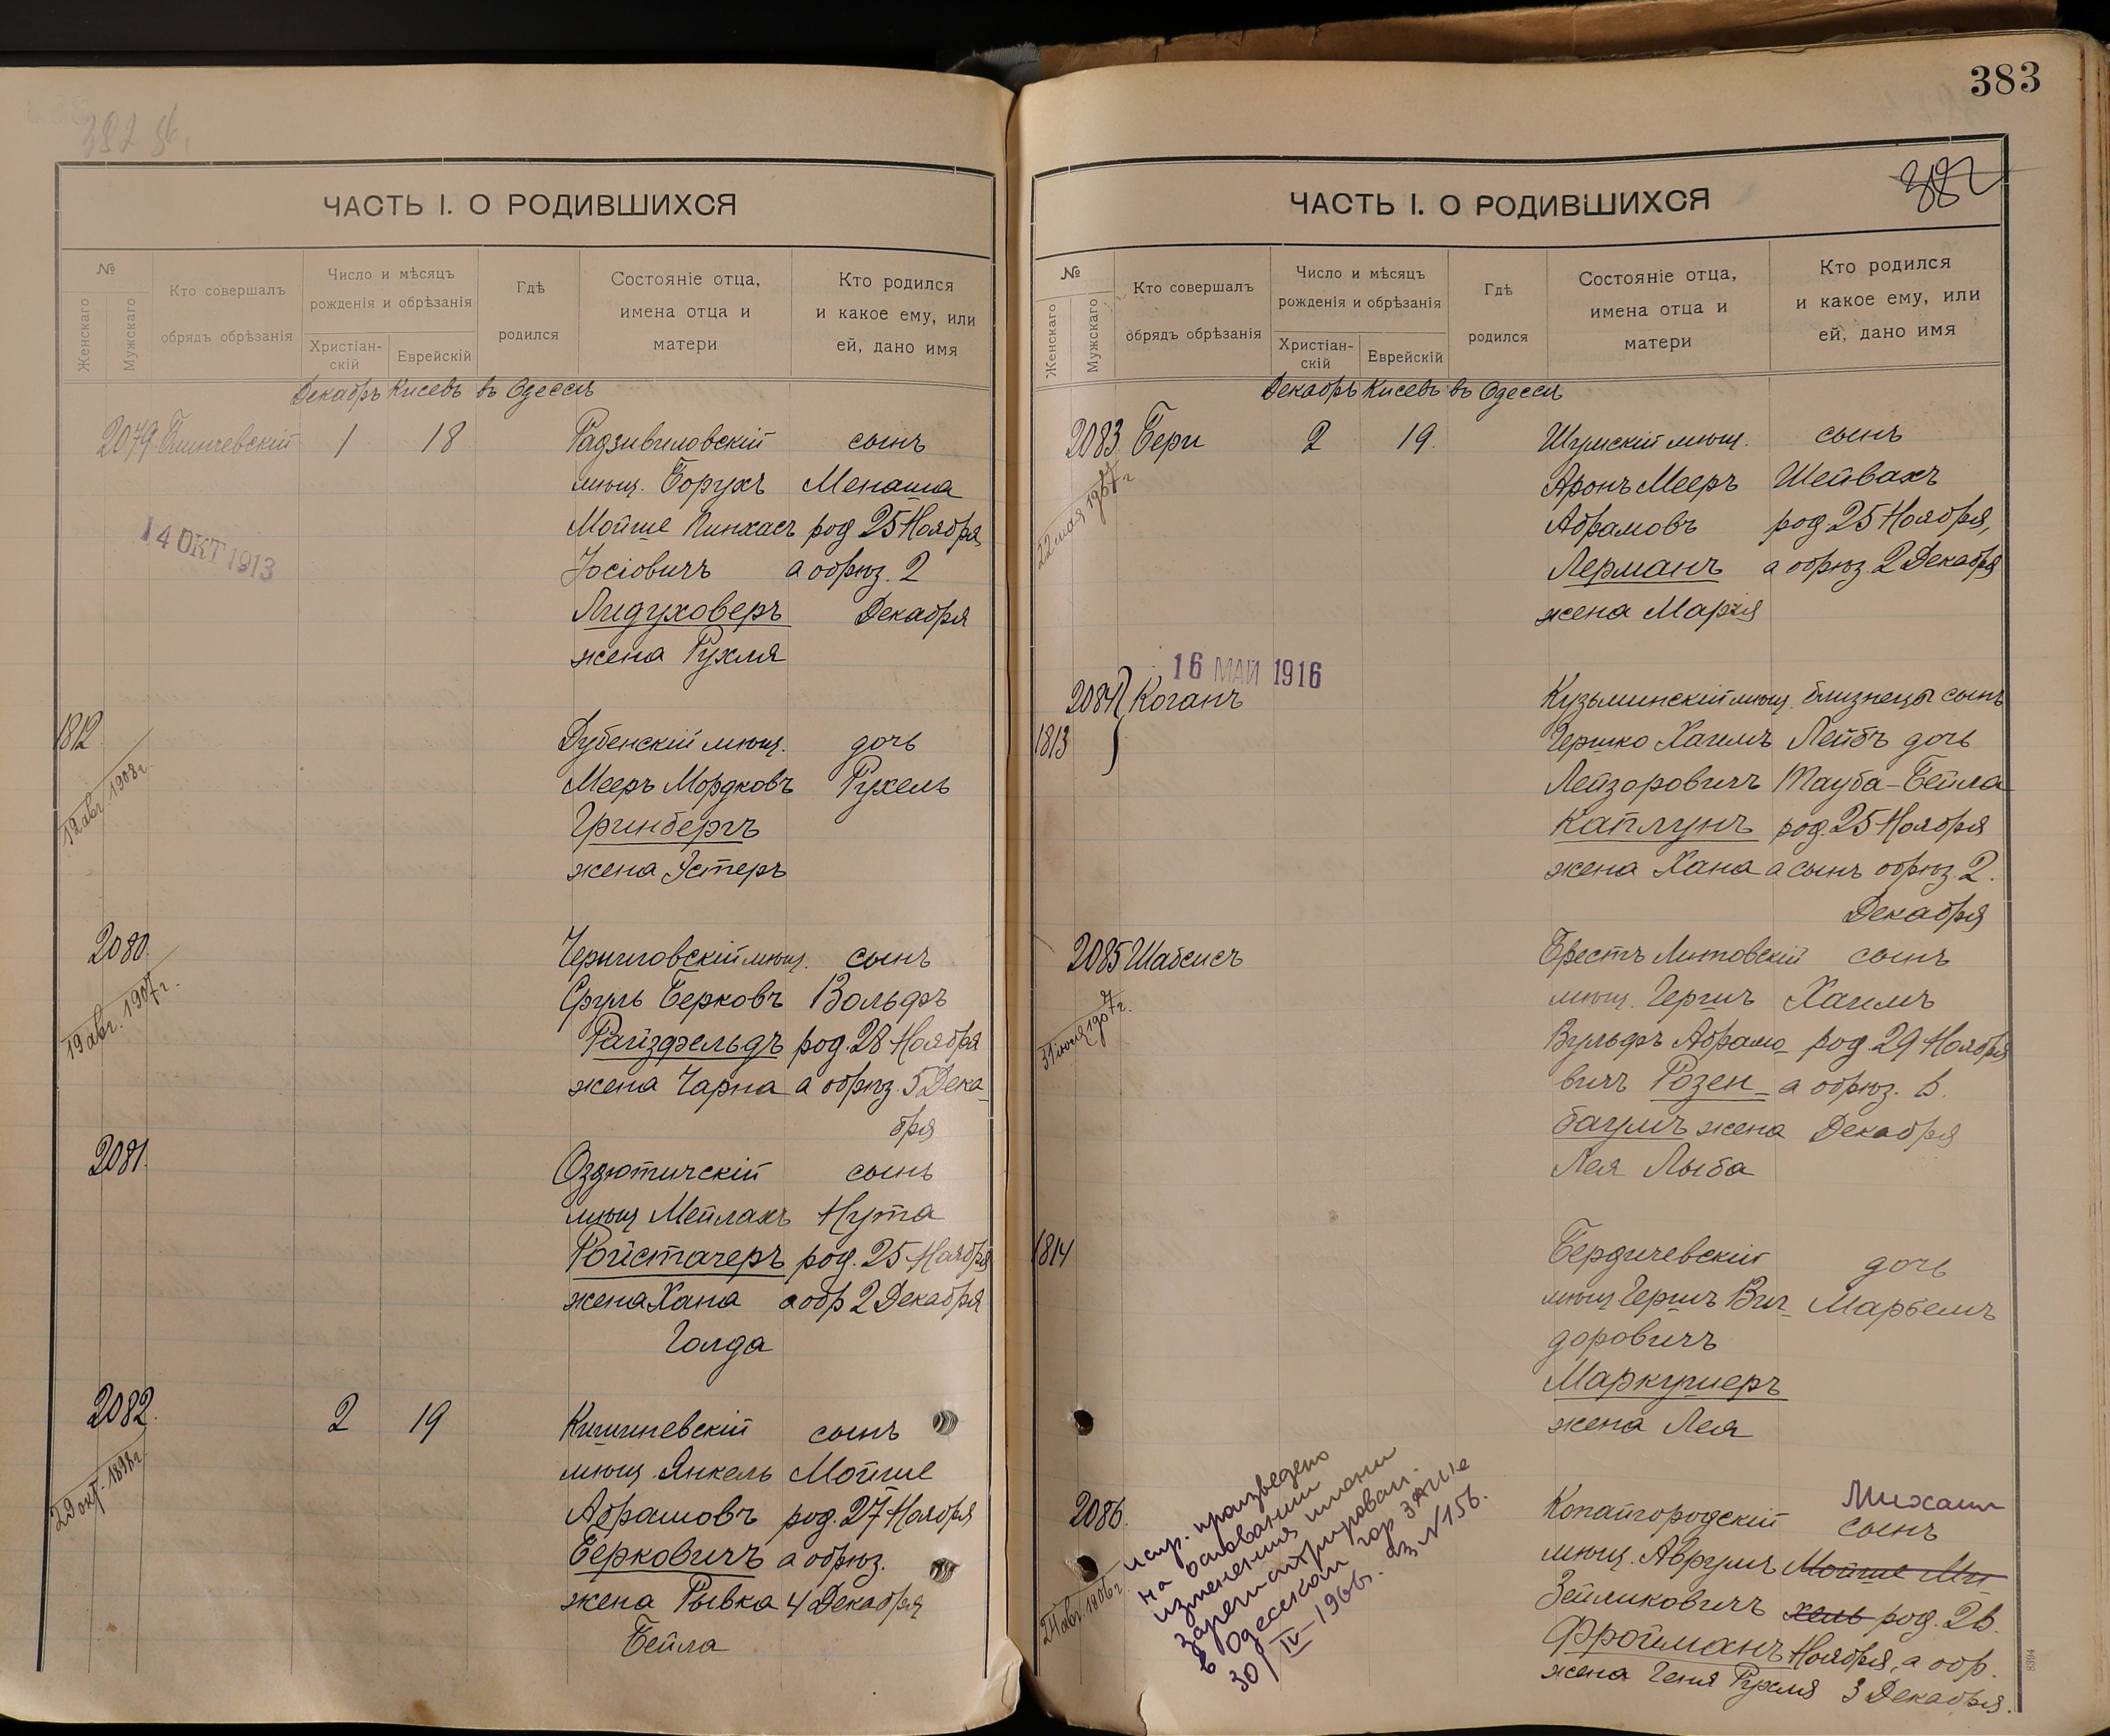 382 об.
ЧАСТЬ I. О РОДИВШИХСЯ
№
Женскаго
Мужскаго
Кто совершалъ
обрядъ обрѣзанія
Число и мѣсяцъ
рожденія и обрѣзанія
Христіан-
скій
Еврейскій
Гдѣ
родился
Состояніе отца,
имена отца и
матери
Кто родился
и какое ему, или
ей, дано имя
Декабрь Кислевъ въ Одессѣ
2079 1 18 Радзивиловскій сынъ
мѣщ. Борухъ Менаша
Мойше Пинхасъ род 25 Ноября
14 ОКТ 1913
Іосіовичъ а обрѣз. 2
Лидуховеръ Декабря
жена Рухля
1812 Дубенскій мѣщ. дочь
12 авг. 1908 г.
Мееръ Мордковъ Рухель
Гринбергъ
жена Эстеръ
2080. Черниговскій мѣщ. сынъ
19 авг. 1907 г.
Сруль Берковъ Вольфъ
Райзфельдъ род. 28 Ноября
жена Чарна а обрѣз. 5 Дека-
бря
2081. Оздютичскій сынъ
мѣщ Мейлахъ Нута
Ройстачеръ род. 25 Ноября
жена Хана а обр 2 Декабря
Голда
2082. 2 19 Кишиневскій сынъ
29 окт. 1898 г.
мѣщ. Янкель Мойше
Абрамовъ род. 27 Ноября
Берковичъ а обрѣз.
жена Рывка 4 Декабря
Бейла
383
382
ЧАСТЬ I. О РОДИВШИХСЯ
№
Женскаго
Мужскаго
Кто совершалъ
обрядъ обрѣзанія
Число и мѣсяцъ
рожденія и обрѣзанія
Христіан-
скій
Еврейскій
Гдѣ
родился
Состояніе отца,
имена отца и
матери
Кто родился
и какое ему, или
ей, дано имя
Декабрь Кислевъ въ Одессѣ
2083 Бери 2 19. Шумскій мѣщ. сынъ
22 мая 1907 г
Аронъ Мееръ Шейвахъ
Абрамовъ род 25 Ноября,
Лерманъ а обрѣз. 2 Декабря
жена Марія
16 МАЙ 1916
2084 } Коганъ Кузьминскій мѣщ. близнецы сынъ
1813 Гершко Хаимъ Лейбъ дочь
Лейзоровичъ Тауба-Бейла
Каплунъ род. 25 Ноября
жена Хана а сынъ обрѣз. 2.
Декабря
2085 Шабсисъ Брестъ Литовскій сынъ
31 іюля 1907 г.
мѣщ. Гершъ Хаимъ
Вульфъ Абрамо- род. 29 Ноября
вичъ Розен- а обрѣз. 6.
баумъ жена Декабря
Лея Лыба
1814 Бердичевскій дочь
мѣщ. Гершъ Виг- Марьемъ
доровичъ
Маркушеръ
жена Лея
2086. Копайгородскій Михаил
сынъ
24 авг. 1906 г.
мѣщ. Аврумъ Мойше Ми-
Зейликовичъ хель род. 26.
Фройманъ Ноября, а обр.
жена Геня Рухля 3 Декабря.
испр. произведено
на основании
изменения имени
зарегистрирован.
в Одесском гор ЗАГСе
30/IV-1966г. аз №156.
8394